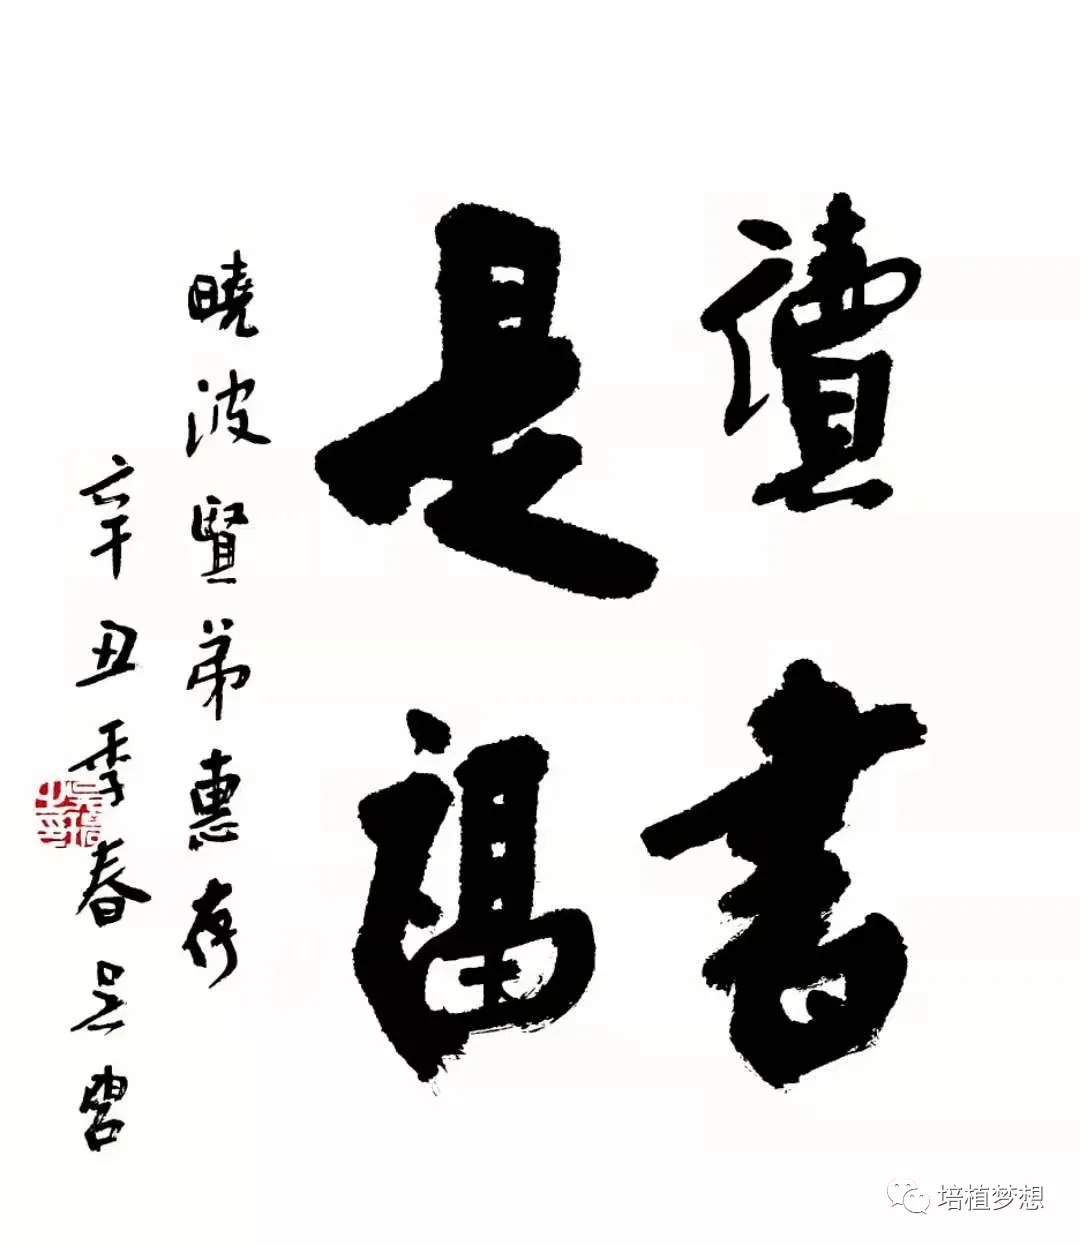 讀書
是福
曉波賢弟惠存
辛丑季春吴
培植梦想